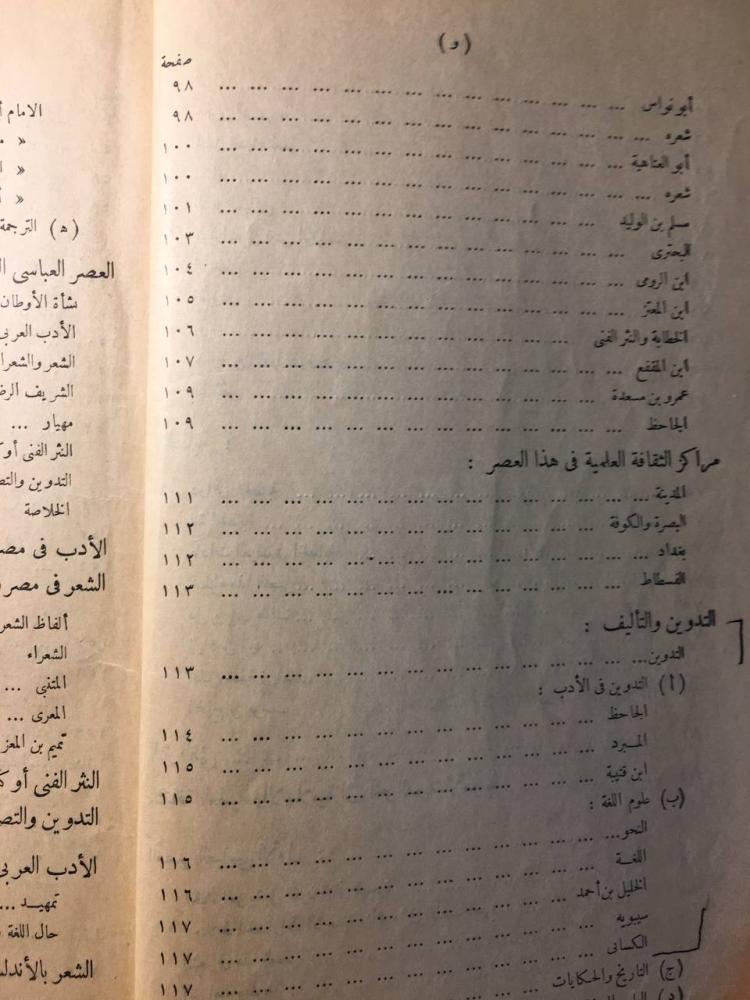 (و)
صفحة
أبو نواس ... ٩٨
شعره ... ٩٨
أبو العتاهية ... ١٠٠
شعره ... ١٠٠
مسلم بن الوليد ... ١٠١
البحترى ... ١٠٣
ابن الرومى ... ١٠٤
ابن المعتز ... ١٠٥
الخطابة والنثر الفنى ... ١٠٦
ابن المقفع ... ١٠٧
عمرو بن مسعدة ... ١٠٩
الجاحظ ... ١٠٩
مراكز الثقافة العلمية فى هذا العصر :
المدينة ... ١١١
البصرة والكوفة ... ١١٢
بغداد ... ١١٢
الفسطاط ... ١١٣
التدوين والتأليف :
التدوين ... ١١٣
(أ) التدوين فى الأدب :
الجاحظ ... ١١٤
المبرد ... ١١٥
ابن قتيبة ... ١١٥
(ب) علوم اللغة :
النحو ... ١١٦
اللغة ... ١١٦
الخليل بن أحمد ... ١١٧
سيبويه ... ١١٧
الكسائى ... ١١٧
(ج) التاريخ والحكايات ...
الامام
»
»
»
(ه) الترجمة
العصر العباسى
نشأة الأوطان
الأدب العربى
الشعر والشعرا
الشريف الرض
مهيار ...
النثر الفنى أو
التدوين والتص
الخلاصة
الأدب فى مصر
الشعر فى مصر
ألفاظ الشعر
الشعراء
المتنبى ...
المعرى ...
تميم بن المعز
النثر الفنى أو
التدوين والتص
الأدب العربى
تمهيد ...
حال اللغة
الشعر بالأندل